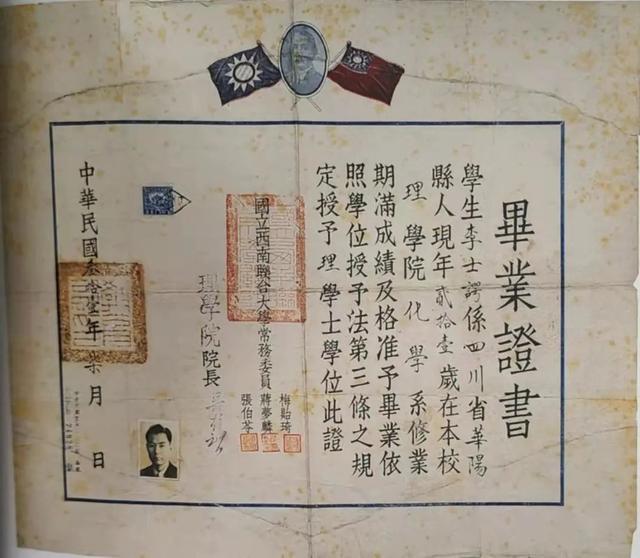 畢業證書
學生李士諤係四川省華陽
縣人現年貳拾壹歲在本校
理學院化學系修業
期滿成績及格准予畢業依
照學位授予法第三條之規
定授予理學士學位此證
國立西南聯合大學常務委員
梅貽琦
蔣夢麟
張伯苓
理學院院長
中華民國叁拾壹年柒月 日